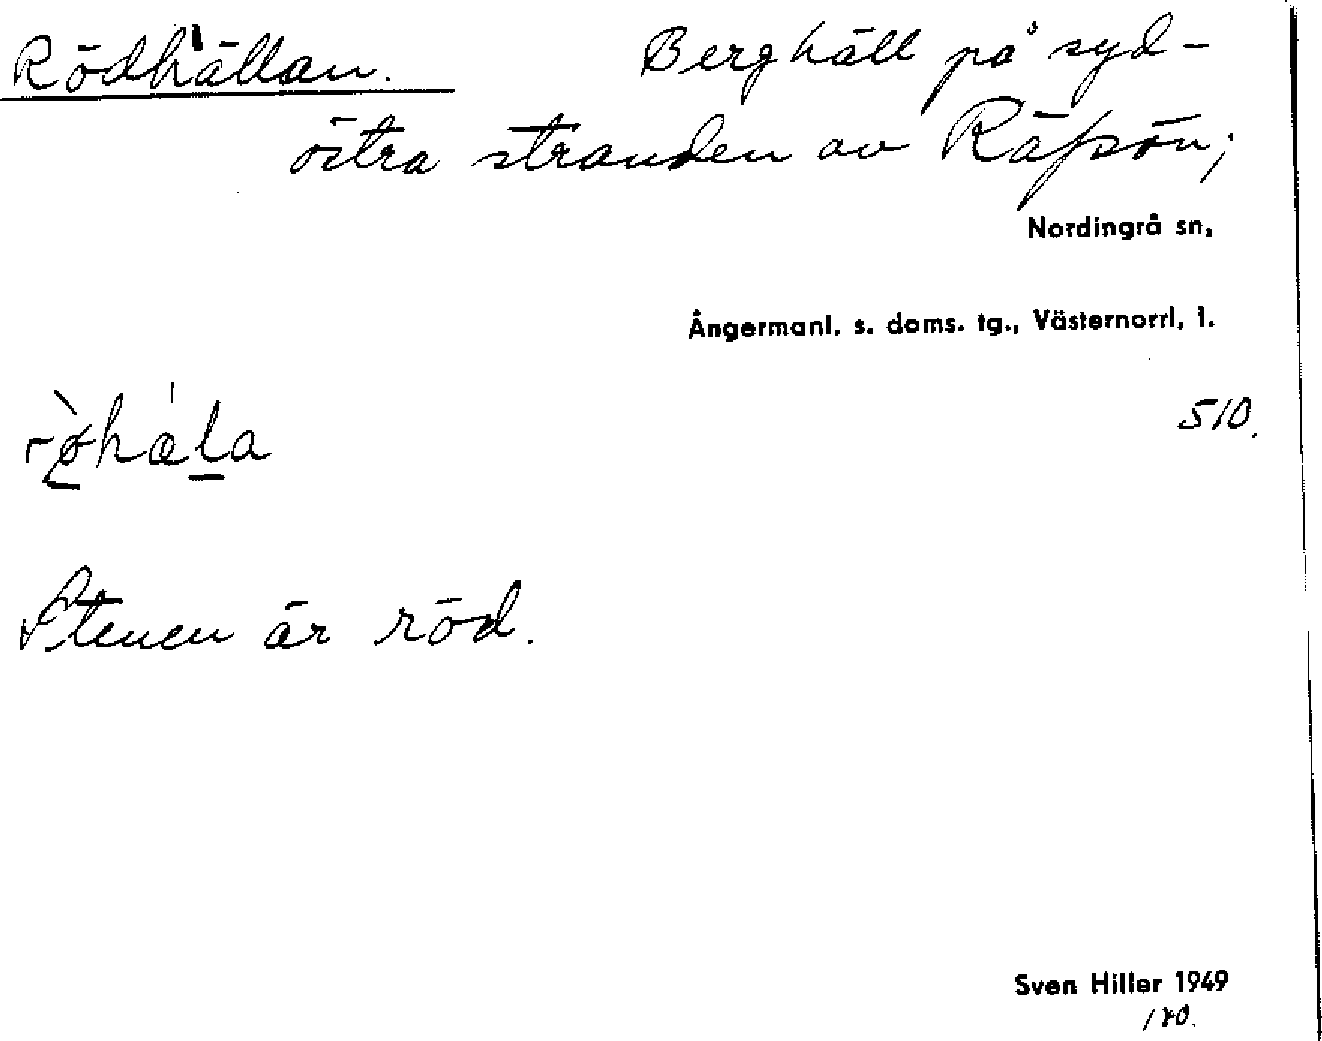 Rödhällan. Berghäll på syd-
östra stranden av Räpsön;
Nordingrå sn,
Ångermanl. s. doms. tg., Västernorrl, l.
510.
Stenen är röd.
Sven Hiller 1949